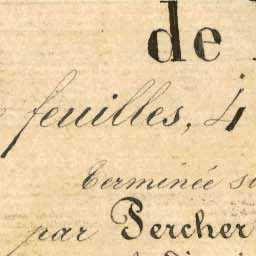 de
feuilles, 4
Terminée
par Percher